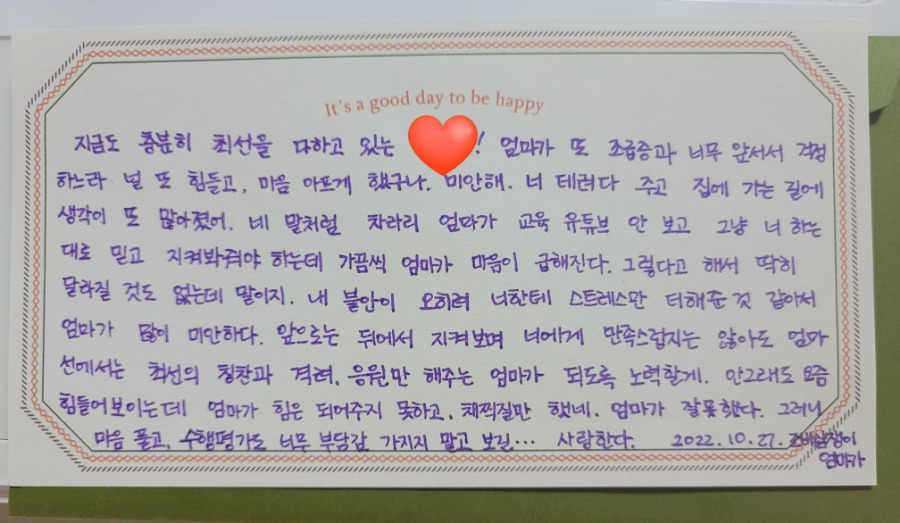 It's a good day to be happy
지금도 충분히 최선을 다하고 있는 ! 엄마가 또 조급증과 너무 앞서서 걱정
하느라 널 또 힘들고, 마음 아프게 했구나. 미안해. 너 데려다 주고 집에 가는 길에
생각이 또 많아졌어. 네 말처럼 차라리 엄마가 교육 유튜브 안 보고 그냥 너 하는
대로 믿고 지켜봐줘야 하는데 가끔씩 엄마가 마음이 급해진다. 그렇다고 해서 딱히
달라질 것도 없는데 말이지. 내 불안이 오히려 너한테 스트레스만 더해준 것 같아서
엄마가 많이 미안하다. 앞으로는 뒤에서 지켜보며 너에게 만족스럽지는 않아도 엄마
선에서는 최선의 칭찬과 격려, 응원만 해주는 엄마가 되도록 노력할게. 안그래도 요즘
힘들어보이는데 엄마가 힘은 되어주지 못하고, 채찍질만 했네. 엄마가 잘못했다. 그러니
마음 풀고, 수행평가도 너무 부담감 가지지 말고 보길... 사랑한다. 2022. 10. 27.
엄마가